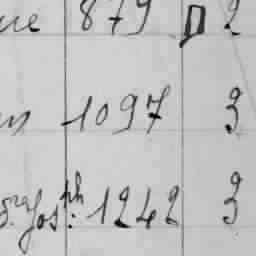 ue 879 2
n 1097 3
Jos.ph 1242 3